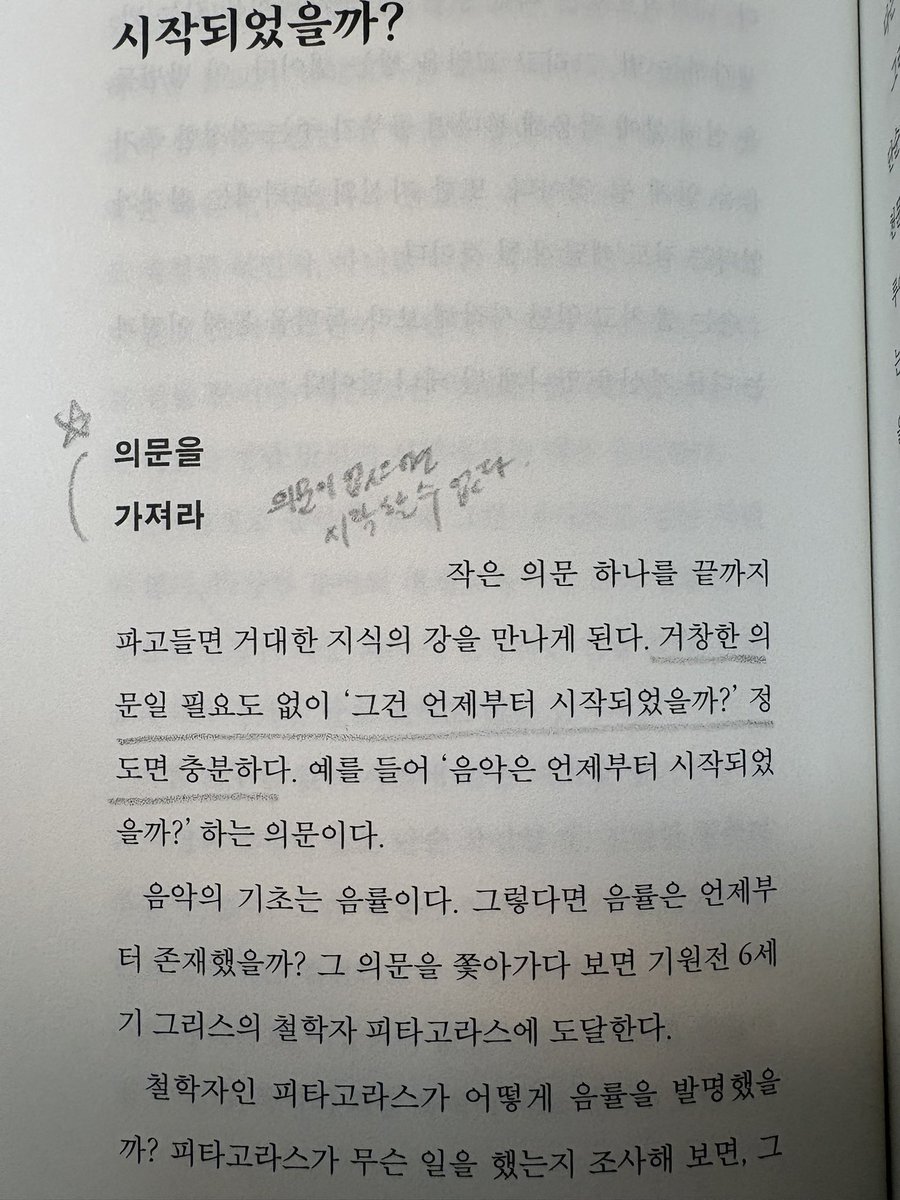 시작되었을까?
의문을
가져라
의문이 없으면
시작할 수 없다.
작은 의문 하나를 끝까지
파고들면 거대한 지식의 강을 만나게 된다. 거창한 의
문일 필요도 없이 ‘그건 언제부터 시작되었을까?’ 정
도면 충분하다. 예를 들어 ‘음악은 언제부터 시작되었
을까?’ 하는 의문이다.
음악의 기초는 음률이다. 그렇다면 음률은 언제부
터 존재했을까? 그 의문을 쫓아가다 보면 기원전 6세
기 그리스의 철학자 피타고라스에 도달한다.
철학자인 피타고라스가 어떻게 음률을 발명했을
까? 피타고라스가 무슨 일을 했는지 조사해 보면, 그